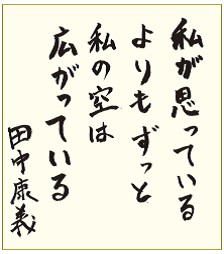 私が思っている
よりもずっと
私の空は
広がっている
田中康義